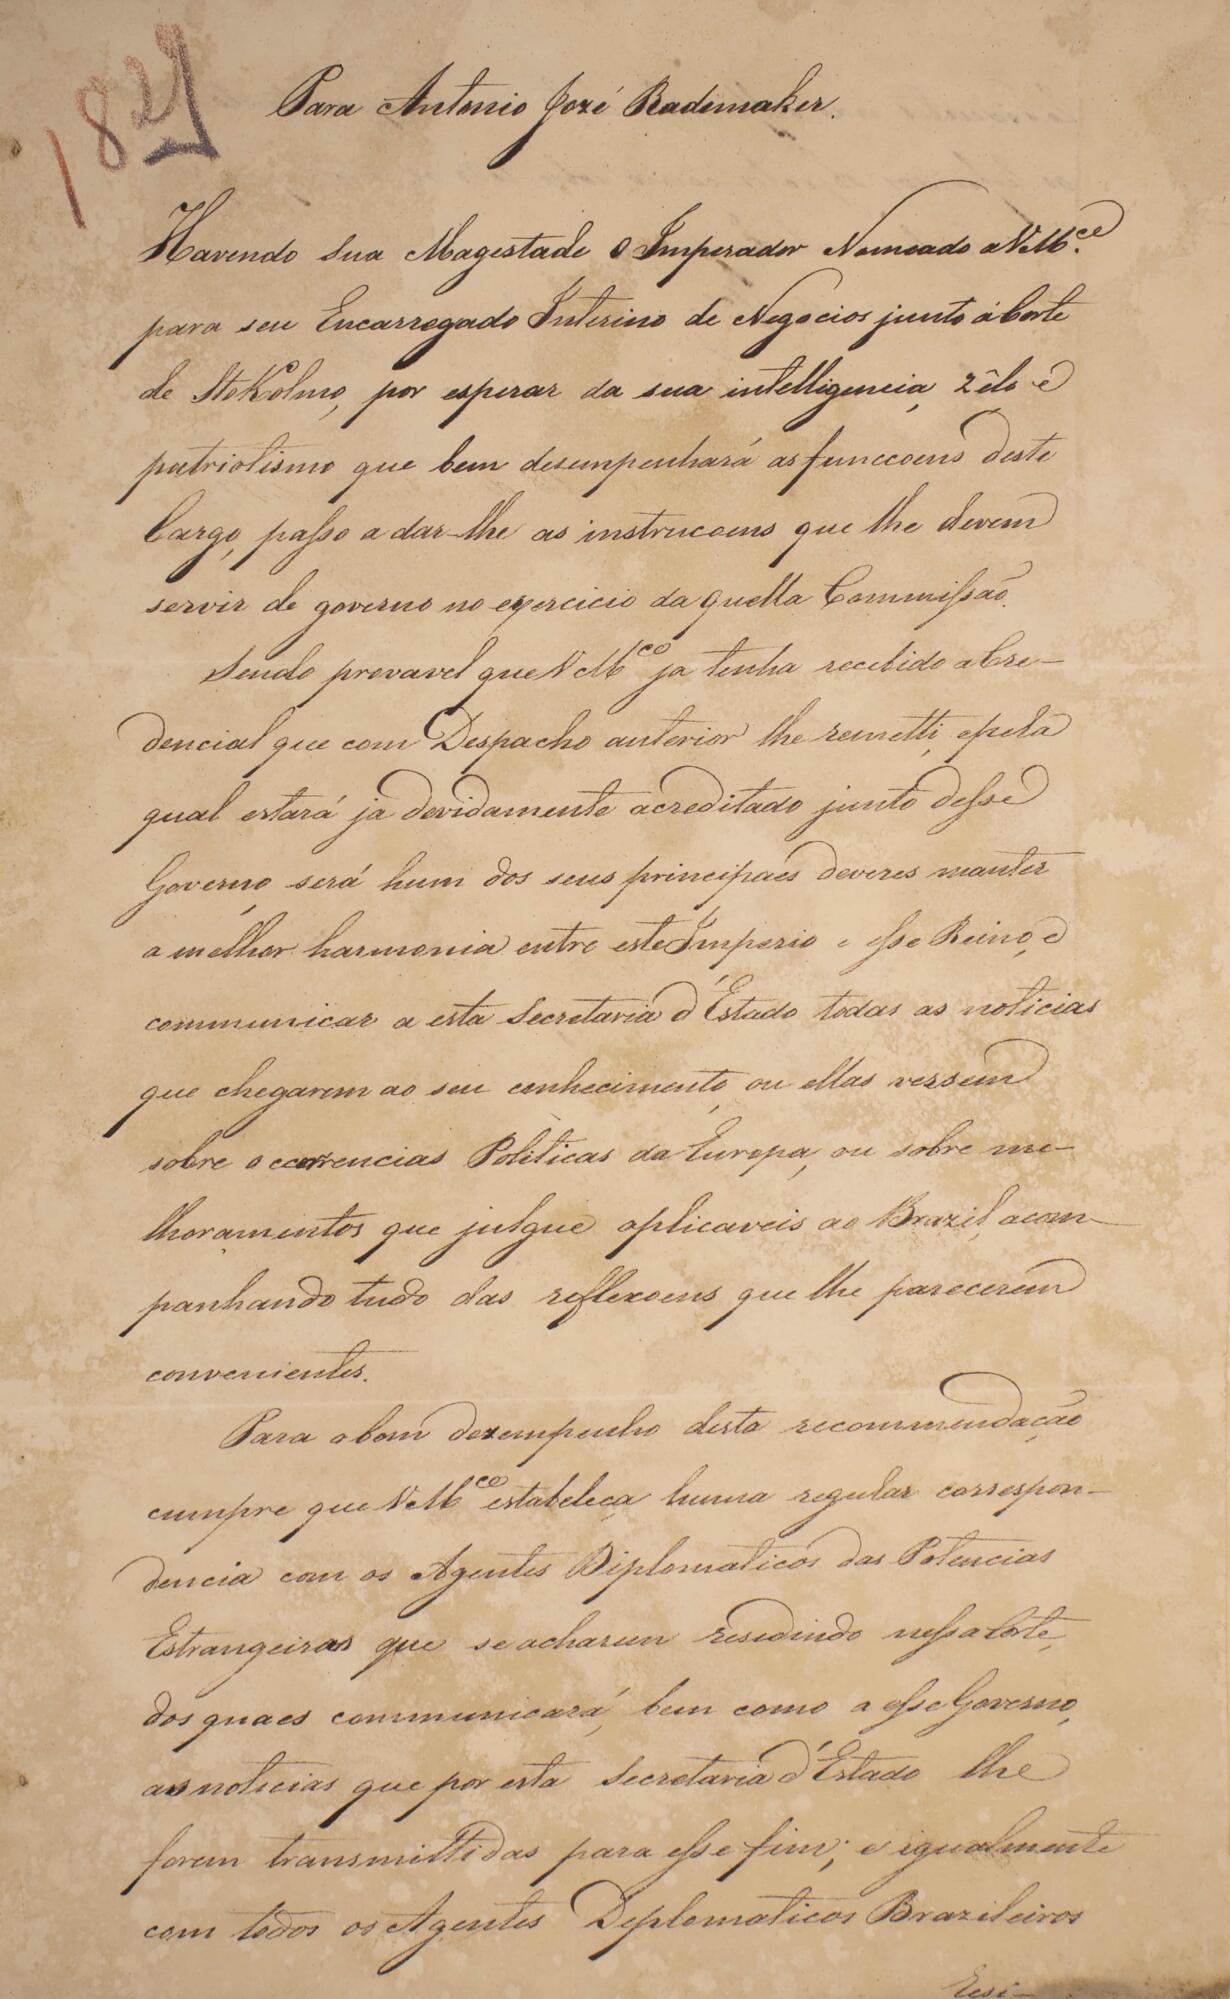 182
Para Antonio Jozé Rademaker.
Havendo Sua Magestade O Imperador Nomeado a VMce.
para seu Encarregado Interino de Negocios junto á Corte
de StoKolmo, por esperar da sua intelligencia, zêlo e
patriotismo que bem desempenhará as funccoens deste
Cargo, passo a dar-lhe as instrucoens que lhe devem
servir de governo no exercicio daquella Commissão.
Sendo provavel que VMce ja tenha recebido a Cre-
dencial que com Despacho anterior lhe remetti, e pela
qual estará já devidamente acreditado junto desse
Governo, será hum dos seus principaes deveres manter
a melhor harmonia entre este Imperio e esse Reino, e
communicar a esta Secretaria d'Estado todas as noticias
que chegarem ao seu conhecimento, ou ellas versem
sobre occorrencias Politicas da Europa, ou sobre me-
lhoramentos que julgue aplicaveis ao Brazil, acom-
panhando tudo das reflexoens que lhe parecerem
convenientes.
Para o bom dezempenho desta recommendação
cumpre que VMce estabeleça huma regular correspon-
dencia com os Agentes Diplomaticos das Potencias
Estrangeiras que se acharem residindo nessa Corte,
dos quaes communicará, bem como a esse Governo,
as noticias que por esta Secretaria d'Estado lhe
forem transmittidas para esse fim; e igualmente
com todos os Agentes Deplomaticos Brazileiros
Resi-